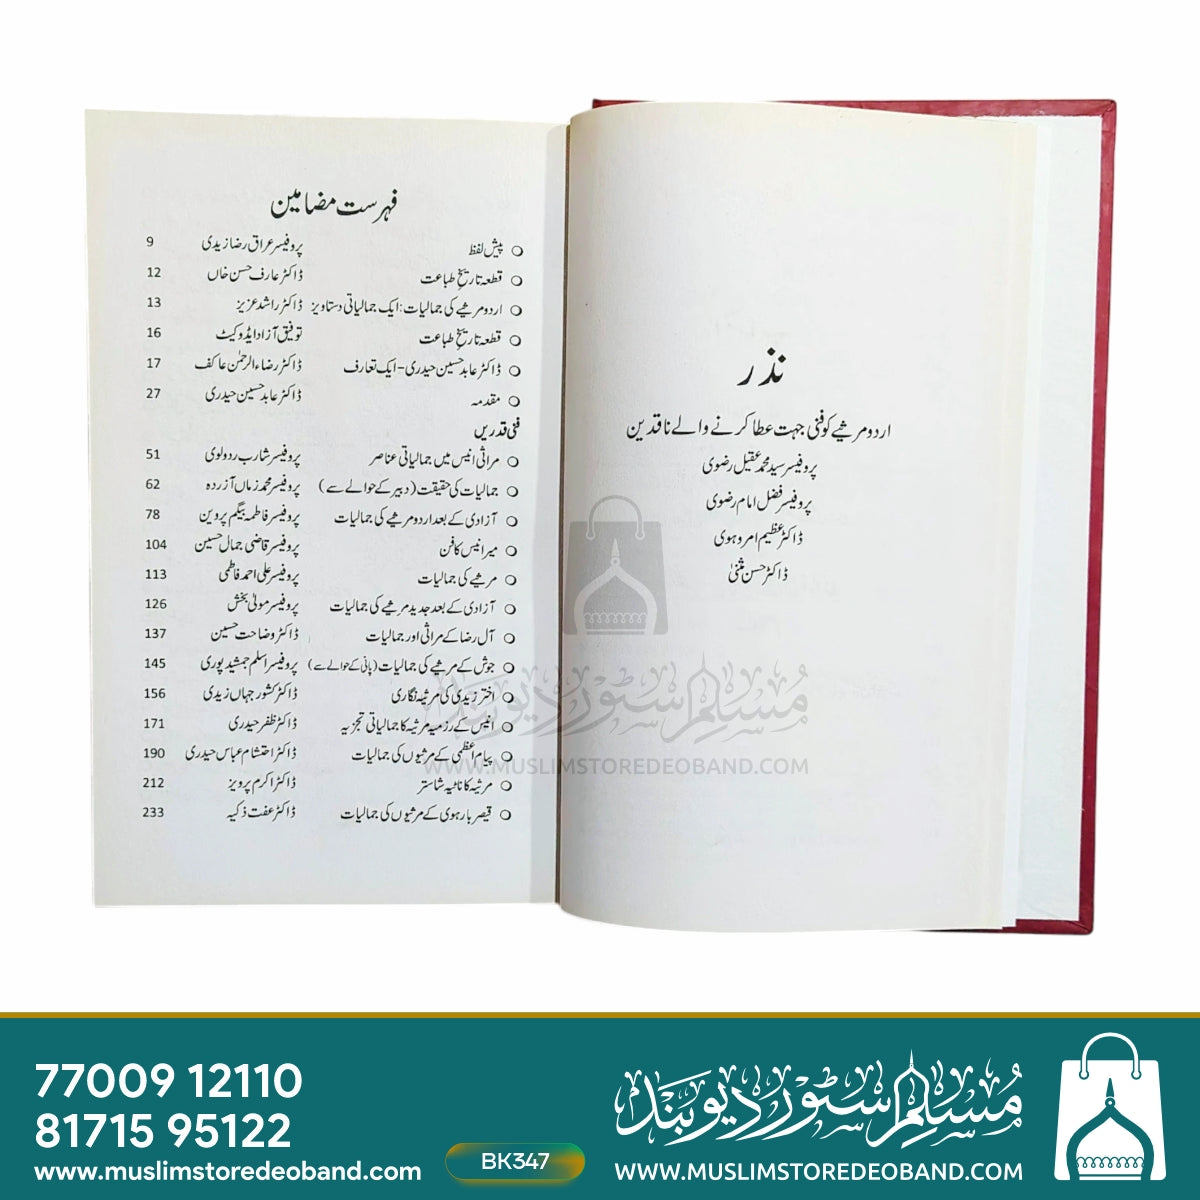 نذر
اردو مرثیے کو فنی جہت عطا کرنے والے ناقدین
پروفیسر سید محمد عقیل رضوی
پروفیسر فضل امام رضوی
ڈاکٹر عظیم امروہوی
ڈاکٹر حسن مثنیٰ
فہرست مضامین
پیش لفظ پروفیسر عراق رضا زیدی 9
قطعہ تاریخِ طباعت ڈاکٹر عارف حسن خاں 12
اردو مرثیے کی جمالیات: ایک جمالیاتی دستاویز ڈاکٹر راشد عزیز 13
قطعہ تاریخِ طباعت توفیق آزاد ایڈوکیٹ 16
ڈاکٹر عابد حسین حیدری - ایک تعارف ڈاکٹر رضاء الرحمٰن عاکف 17
مقدمہ ڈاکٹر عابد حسین حیدری 27
فنی قدریں
مراثی انیس میں جمالیاتی عناصر پروفیسر شارب ردولوی 51
جمالیات کی حقیقت (دبیر کے حوالے سے) پروفیسر محمد زماں آزردہ 62
آزادی کے بعد اردو مرثیے کی جمالیات پروفیسر فاطمہ بیگم پروین 78
میر انیس کا فن پروفیسر قاضی جمال حسین 104
مرثیے کی جمالیات پروفیسر علی احمد فاطمی 113
آزادی کے بعد جدید مرثیے کی جمالیات پروفیسر مولیٰ بخش 126
آل رضا کے مراثی اور جمالیات ڈاکٹر وضاحت حسین 137
جوش کے مرثیے کی جمالیات (پانی کے حوالے سے) پروفیسر اسلم جمشید پوری 145
اختر زیدی کی مرثیہ نگاری ڈاکٹر کشور جہاں زیدی 156
انیس کے رزمیہ مرثیہ کا جمالیاتی تجزیہ ڈاکٹر ظفر حیدری 171
پیام اعظمی کے مرثیوں کی جمالیات ڈاکٹر احتشام عباس حیدری 190
مرثیہ کا ناٹیہ شاستر ڈاکٹر اکرم پرویز 212
قیصر بارہوی کے مرثیوں کی جمالیات ڈاکٹر عفت ذکیہ 233
مسلم سٹور دیوبند
WWW.MUSLIMSTOREDEOBAND.COM
77009 12110
81715 95122
www.muslimstoredeoband.com
BK347
مسلم سٹور دیوبند
WWW.MUSLIMSTOREDEOBAND.COM